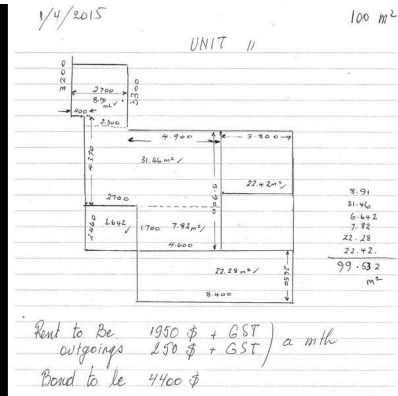 1/4/2015 100 m²
UNIT 11
3200
2700
8.91 m² ✓
3300
400
2.300
4.900
3.800
4.370
31.46 m² ✓
5.900
22.42 m² ✓
2700
2.460
6.642 ✓
1.700
7.82 m² ✓
4.600
22.28 m² ✓
2650
8.400
8.91
31.46
6.642
7.82
22.28
22.42.
99.532
m²
Rent to Be. 1950 $ + GST
outgoings 250 $ + GST ) a mth
Bond to be 4400 $